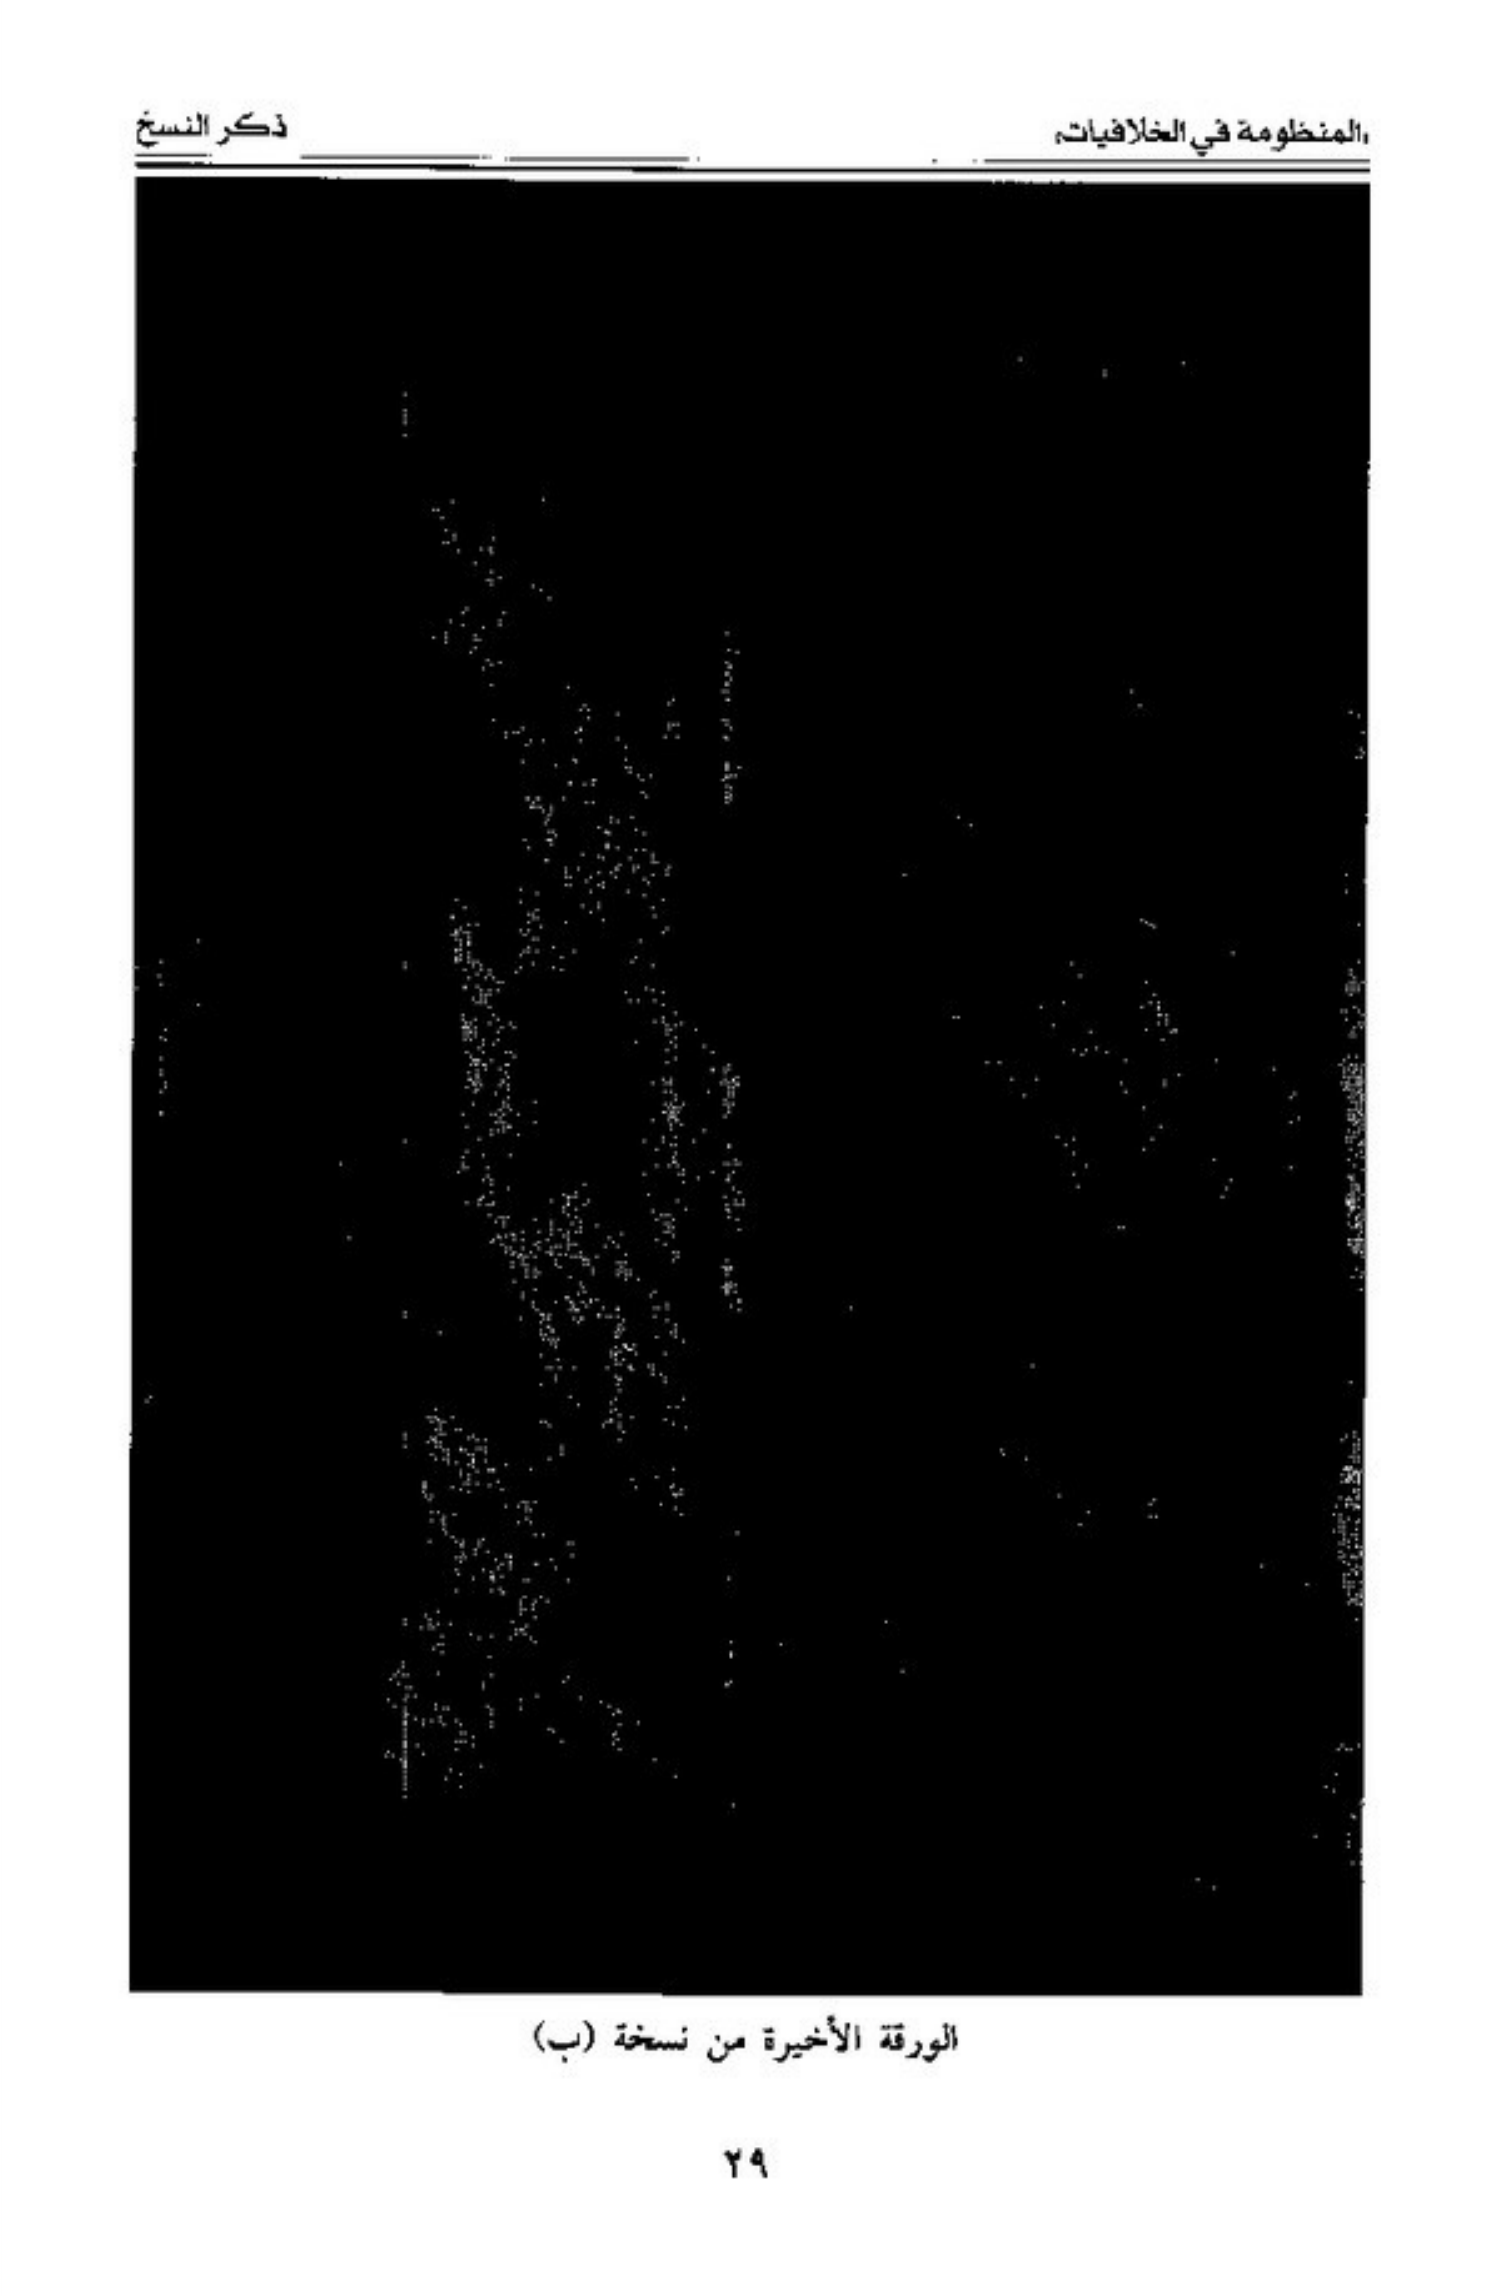 «المنظومة في الخلافيات» ذكر النسخ
الورقة الأخيرة من نسخة (ب)
٢٩